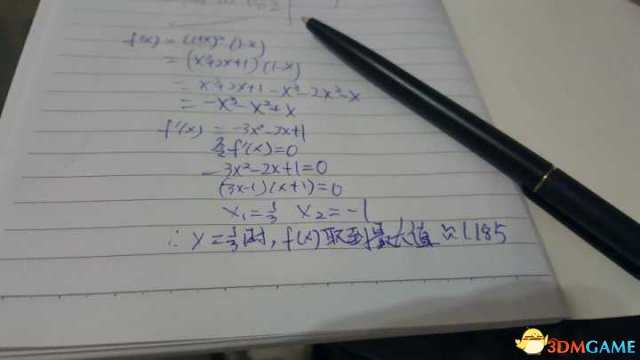 f(x) = (1+x)²·(1-x)
= (x²+2x+1)(1-x)
= x²+2x+1-x³-2x²-x
= -x³-x²+x
f'(x) = -3x²-2x+1
令f'(x)=0
-3x²-2x+1=0
(3x-1)(x+1)=0
x₁=⅓ x₂=-1
∴ x=⅓时,f(x)取到最大值≈1.185
3DMGAME